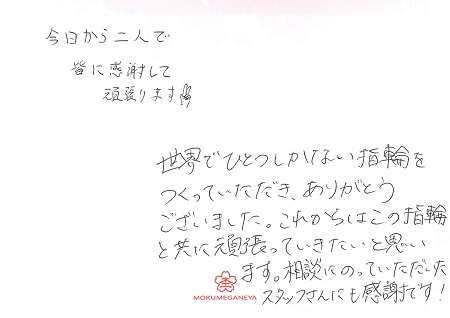 今日から二人で
皆に感謝して
頑張ります
世界でひとつしかない指輪を
つくっていただき、ありがとう
ございました。これからはこの指輪
と共に頑張っていきたいと思い
ます。相談にのっていただいた
スタッフさんにも感謝です!
MOKUMEGANEYA